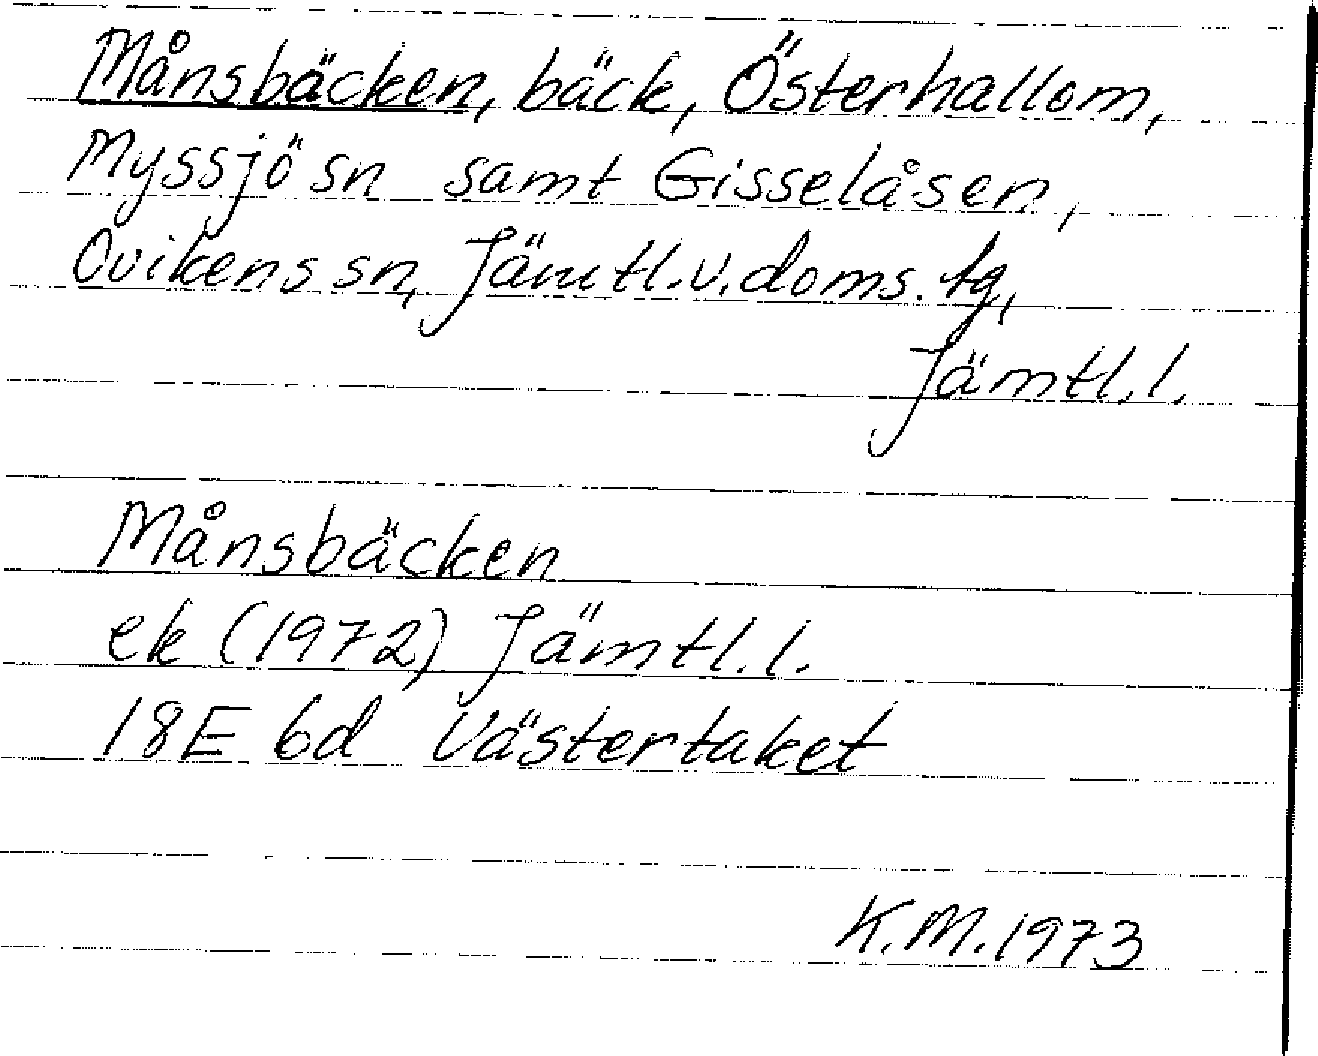 Månsbäcken, bäck, Österhallom,
Myssjö sn samt Gisselåsen,
Ovikens sn, Jämtl.v.doms.tg,
Jämtl.l.
Månsbäcken
ek (1972) Jämtl.l.
18E 6d Västertaket
K.M.1973